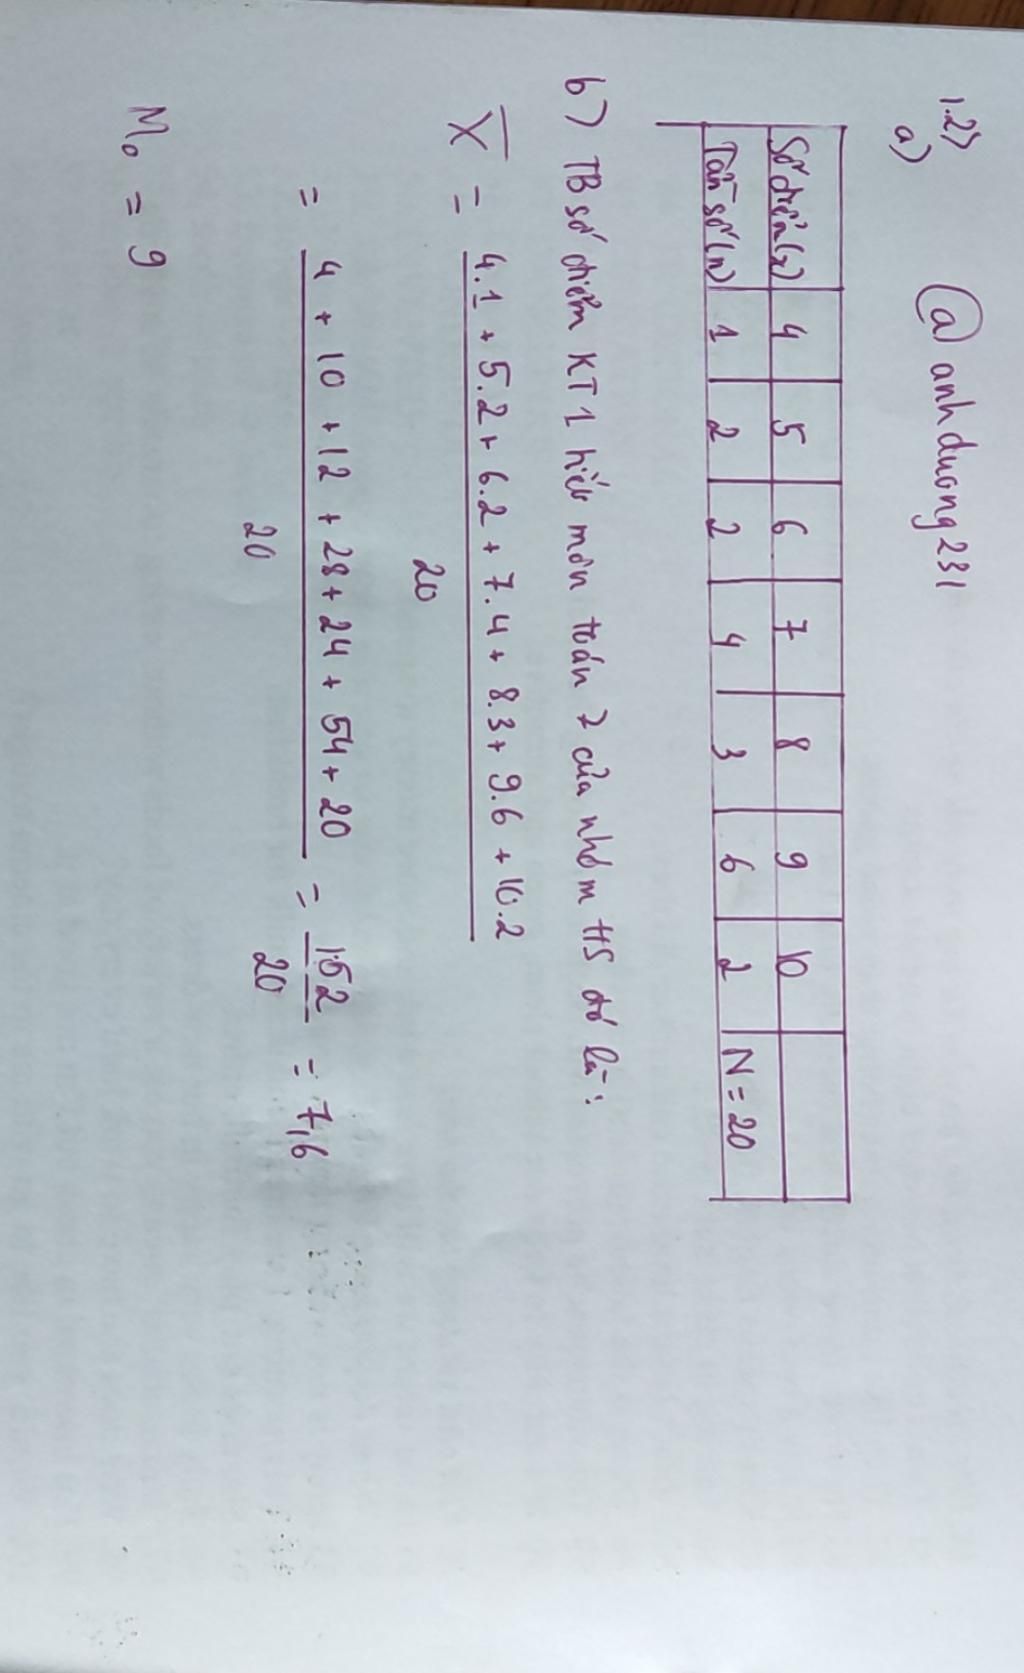 1.2) @anhduong231
a)
Số điểm(x) 4 5 6 7 8 9 10
Tần số(n) 1 2 2 4 3 6 2 N = 20
b) TB số điểm KT 1 tiết môn toán 7 của nhóm HS đó là:
X̄ = 4.1 + 5.2 + 6.2 + 7.4 + 8.3 + 9.6 + 10.2
20
= 4 + 10 + 12 + 28 + 24 + 54 + 20 = 152 = 7,6
20 20
M₀ = 9